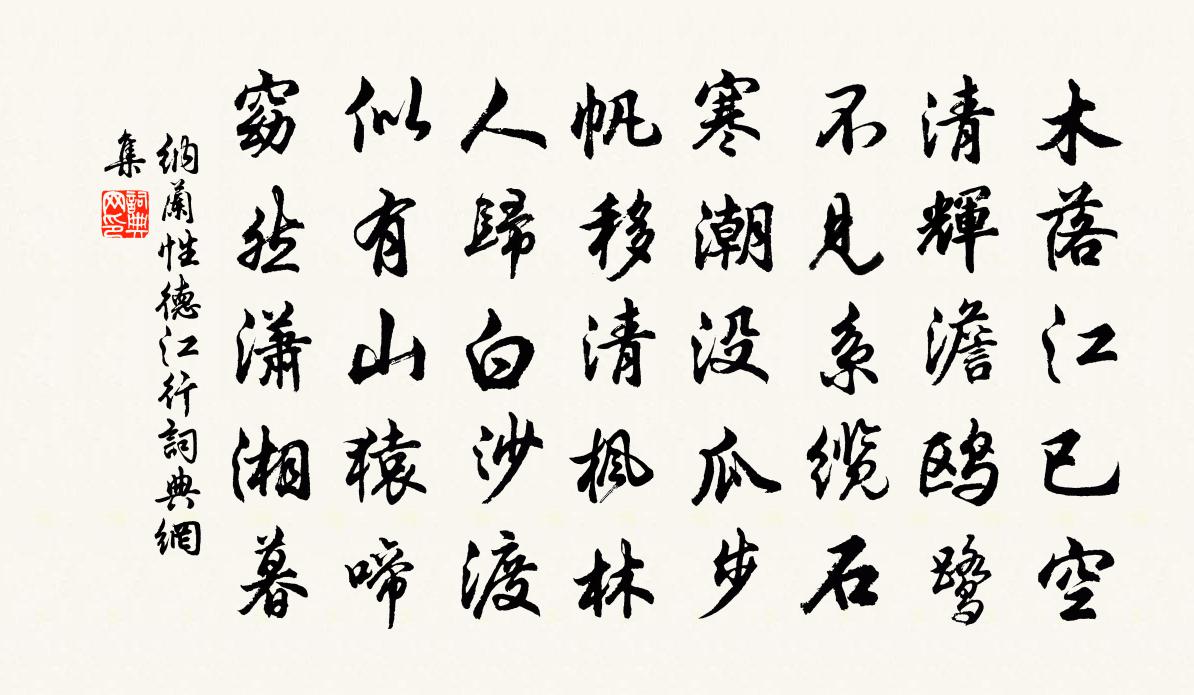 木落江已空
清輝澹鸥鹭
不见系缆石
寒潮没瓜步
帆移清枫林
人歸白沙渡
似有山猿啼
窈然潇湘暮
纳蘭性德江行詞典網
集
詞典
网印